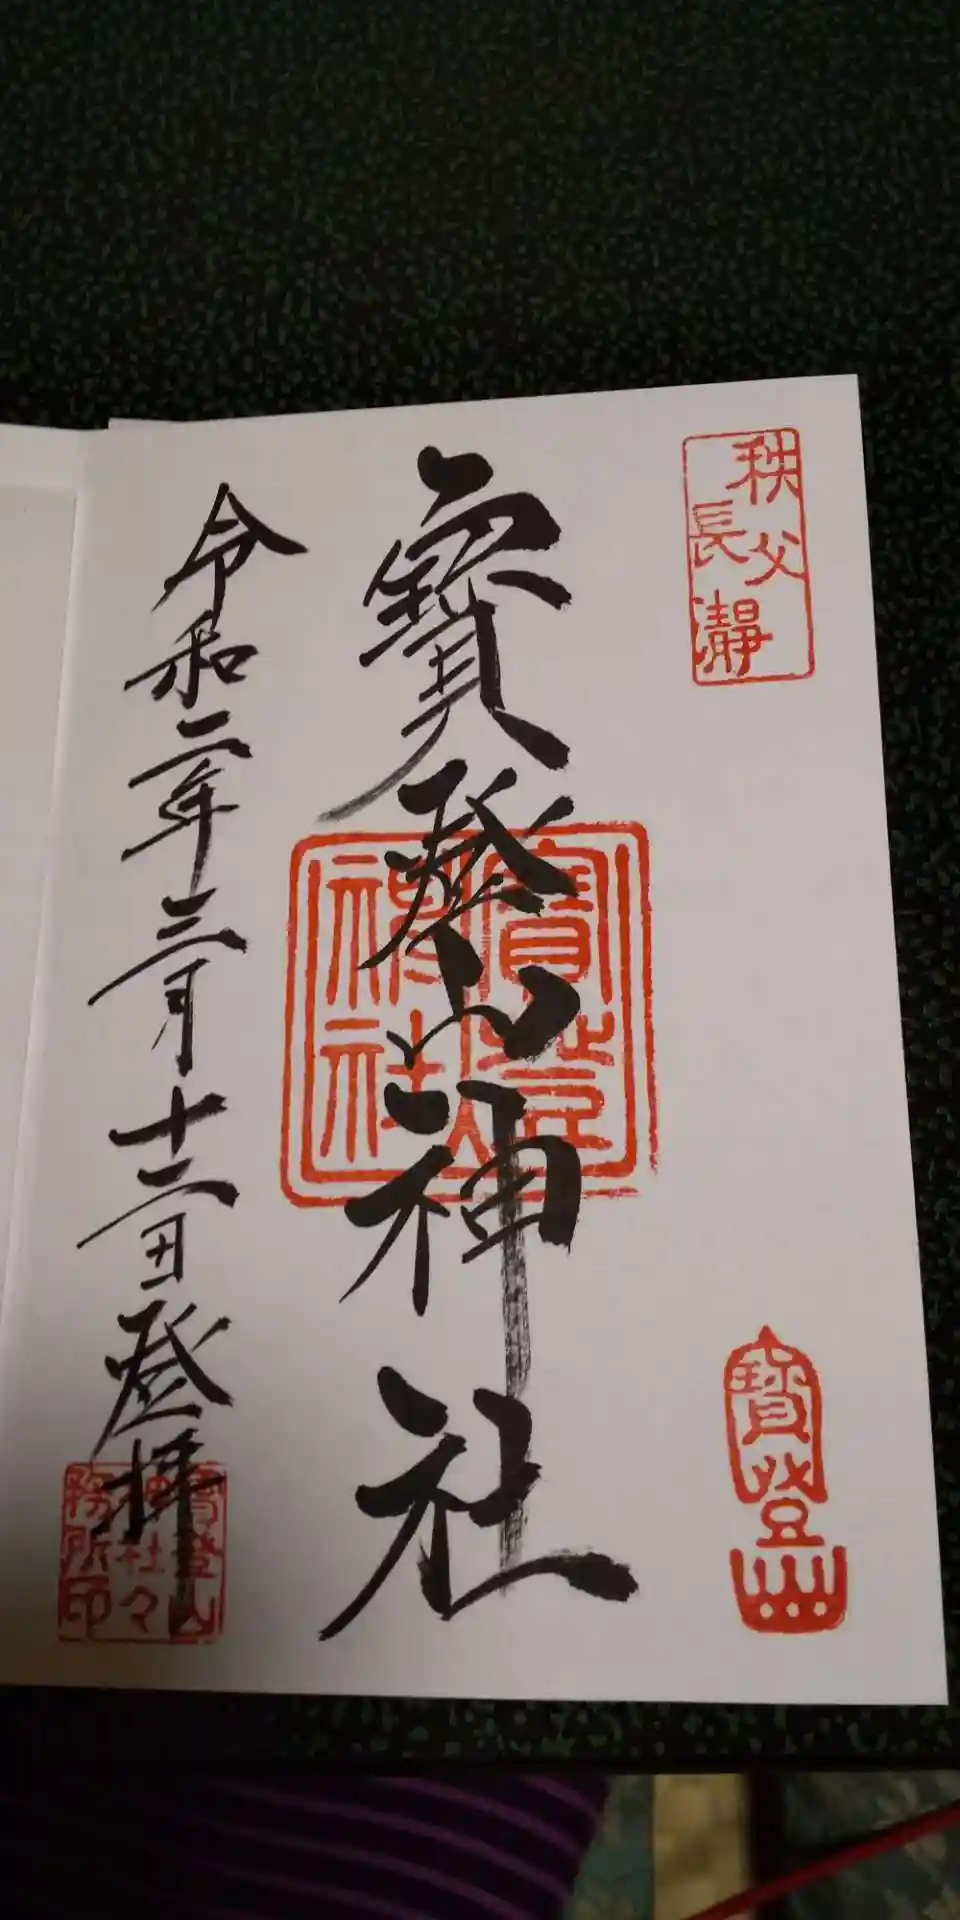 秩父
長瀞
寶登山
寶登山神社
寶登山
神社
令和二年三月十二日登拝
寶登山
神社々
務所印